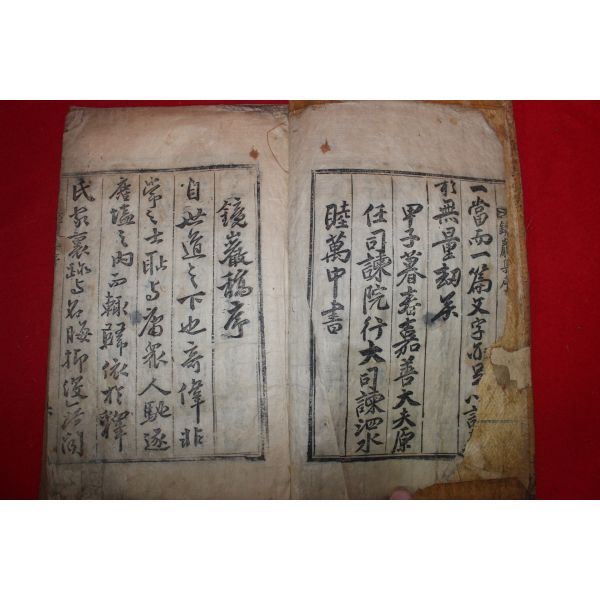 一當而一篇文字亦足以
於無量劫矣
甲子暮春嘉善大夫原
任司諫院行大司諫泗水
睦萬中書
鏡巖稿序
自世道之下也奇偉非
常之士恥與庸衆人馳逐
塵壒之內而輒歸依於釋
氏者裏跡與名晦抑沒